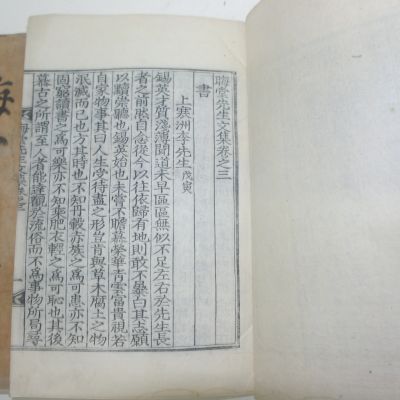 晦堂先生文集卷之三
書
上寒洲李先生 戊寅
錫英才質淺薄聞道未早區區無似不足左右於先生長
者之前然自念從今以往依歸有地則敢不暴白其志願
以瀆崇聽也錫英始也未嘗不膽慕榮華青雲富貴視若
自家物事其曰人生受待盡之形豈肯與草木腐土之物
泯滅而已也方其時也不知丹轂赤族之爲可患亦不知
固窮讀書之爲可樂亦不知乘肥衣輕之爲可恥也其後
慕古之所謂至人者能達觀於流俗而不爲事物所局尋